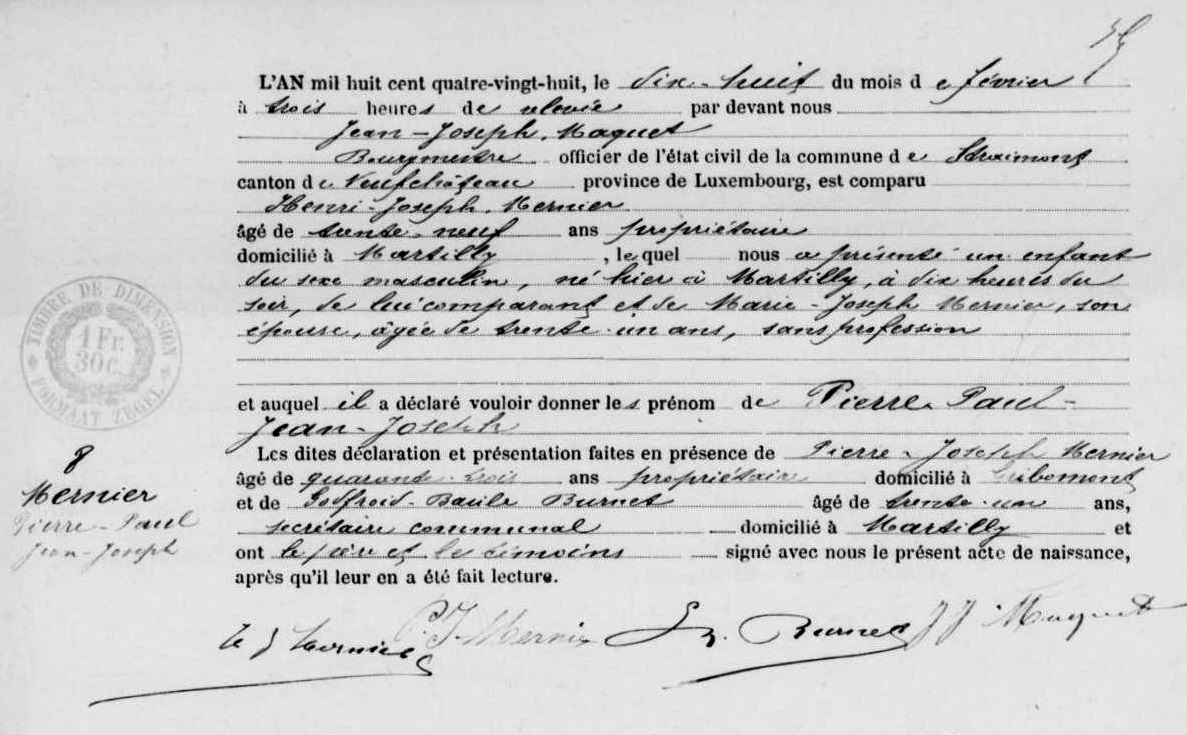 L'AN mil huit cent quatre-vingt-huit, le dix-huit du mois de février
à trois heures de relevée par devant nous
Jean-Joseph Maquet
Bourgmestre officier de l'état civil de la commune de Straimont
canton de Neufchâteau province de Luxembourg, est comparu
Henri-Joseph Mernier
âgé de trente-neuf ans propriétaire
domicilié à Martilly, lequel nous a présenté un enfant
du sexe masculin, né hier à Martilly, à dix heures du
soir, de lui comparant et de Marie-Joseph Mernier, son
épouse, âgée de trente-un ans, sans profession
et auquel il a déclaré vouloir donner les prénom de Pierre-Paul-
Jean-Joseph
Les dites déclaration et présentation faites en présence de Pierre-Joseph Mernier
âgé de quarante-trois ans propriétaire domicilié à Gribomont
et de Godfroid Burnet âgé de trente-un ans,
secrétaire communal domicilié à Martilly et
ont le père et les témoins signé avec nous le présent acte de naissance,
après qu'il leur en a été fait lecture.
8
Mernier
Pierre-Paul
Jean-Joseph
TIMBRE DE DIMENSION
1 Fr.
30 C.
FORMAAT ZEGEL
Mernier P. J. Mernier Burnet J J Maquet